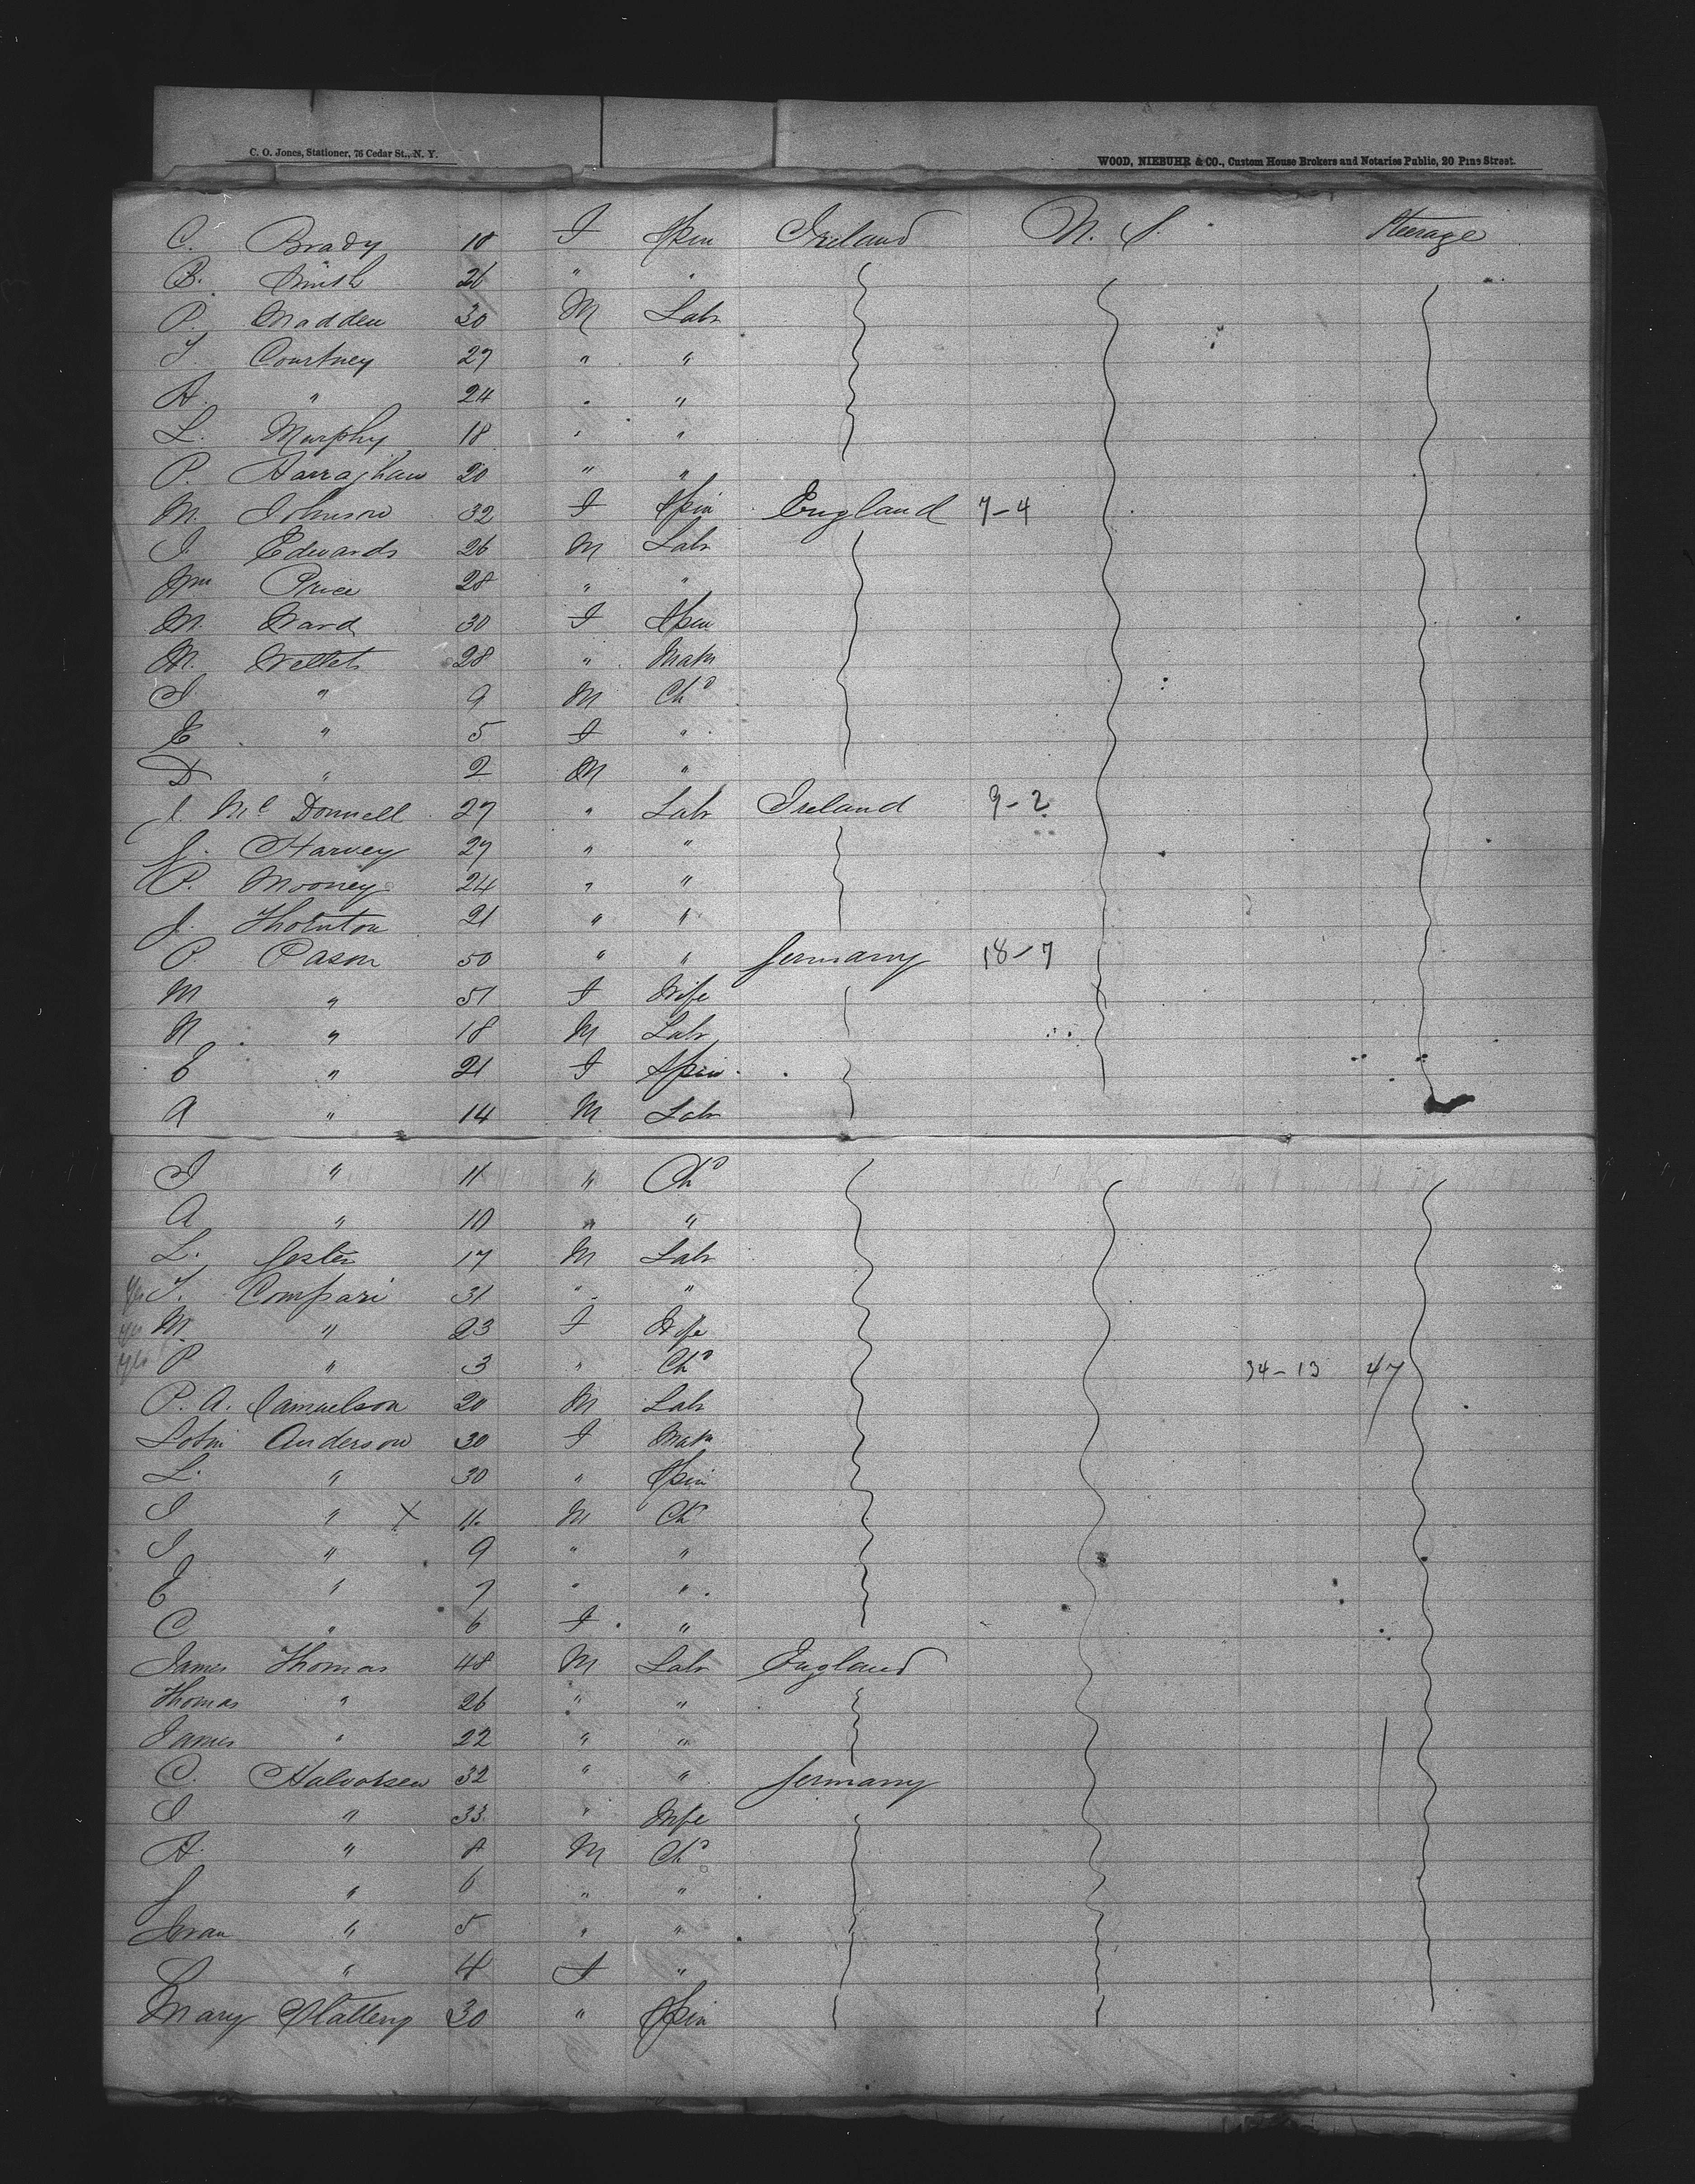 C. O. Jones, Stationer, 76 Cedar St., N. Y.
WOOD, NIEBUHR & CO., Custom House Brokers and Notaries Public, 20 Pine Street.
C. Brady 18 F Spin Ireland U. S. Steerage
B. Smith 26 " "
P. Madden 30 M Labr
T. Courtney 27 " "
A. " 24 " "
L. Murphy 18 " "
P. Harraghan 20 " "
M. Johnson 32 F Spin England 7-4
J. Edwards 26 M Labr
Wm Price 28 " "
M. Ward 30 F Spin
M. 28 " Matn
J " 9 M Chd
E " 5 F "
D " 2 M "
J. Mc Donnell 27 " Labr Ireland 9-2
J. Harvey 27 " "
P. Mooney 24 " "
J. Thornton 21 " "
P. Pason 50 " " Germany 18-7
M " 51 F Wife
N " 18 M Labr
E " 21 F Spin
A " 14 M Labr
J " 11 " Chd
A " 10 " "
L. Jester 17 M Labr
Yes T. Compari 31 " "
Yes M. " 23 F Wife
Yes P " 3 " Chd 34-13 47
P. A. Samuelson 20 M Labr
Anderson 30 F Matn
L. " 30 " Spin
J " X 11 M Chd
J " 9 " "
E " 7 " "
C " 6 F "
James Thomas 48 M Labr England
Thomas " 26 " "
James " 22 " "
C. Halvorsen 32 " " Germany
J " 33 " Wife
A. " 8 M Chd
J " 6 " "
" 5 " "
" 4 F "
Mary 30 " Spin